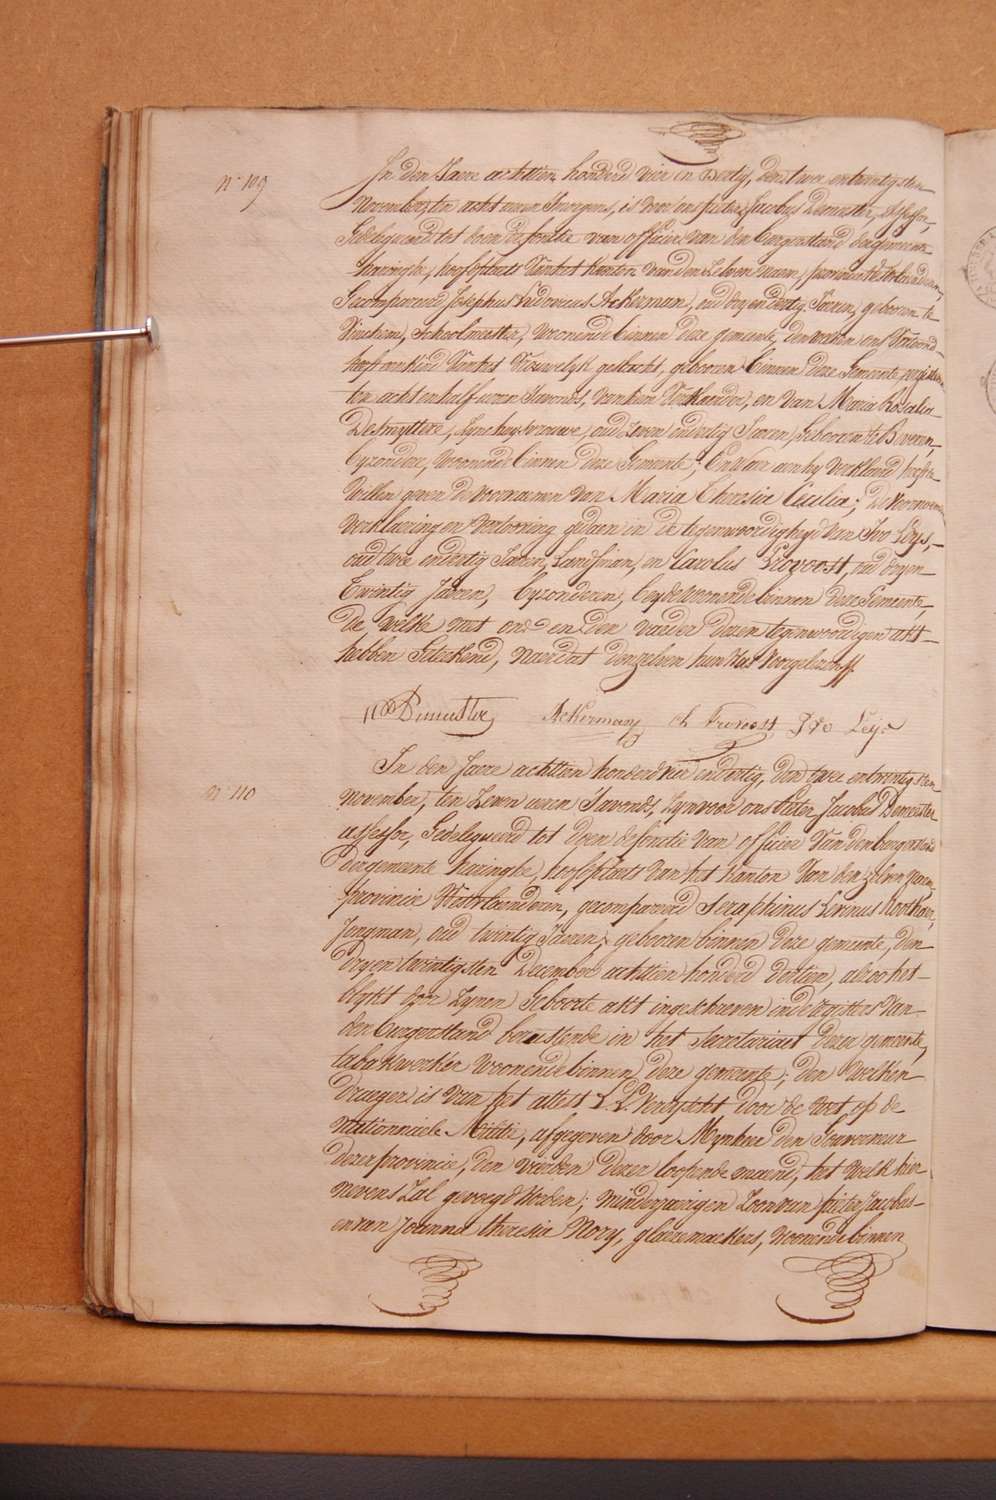 N° 109
In den Jaere achttien honderd vier in dertig, den twee entwintigsten
November ten acht uren Smorgens, is voor ons pieter Jacobus Demeester, assessor,
Gedelegueerd tot doen de fonctie van officier van den burgerstand der gemeente
haringhe, hoofdplaets van het kanton van den zelven naem, provincie West vlaenderen,
Gecompareerd Josephus Ludovicus Ackerman, oud dry en dertig Jaeren, geboren te
Vinchem, Schoolmeester, woonende binnen deze gemeente, den welken ons Vertoond
heeft een kind van het Vrouwelyk geslacht, geboren binnen deze Gemeente, gisteren
ten acht en half uren Savonds, van hem Verklaerder, en van Maria Rosalia
Destuyttere, Syne huysvrouwe, oud zeven en dertig Jaeren, Geboren te Beveren,
byzondere, woonende binnen deze Gemeente; En Waer aen hy verklaerd heeft te
willen geven de voornamen van Maria Theresia Cecilia; de Voornoemde
verklaering en vertooning gedaen in de tegenwoordigheyd van Ivo Leys,
oud twee en dertig Jaeren, Landsman, en Carolus Provoost, oud dryen
Twintig Jaeren, byzonderen, beyde woonende binnen deze Gemeente,
de Welke met ons en den vaeder dezen tegenwoordigen akt
hebben Geteekend, naer dat denzelven hun Was voorgelezen.
P J Demeester Ackerman Ch Provoost Ivo Leys
N° 110
In den Jaere achttien honderd vier en dertig, den twee entwintigsten
November, ten zeven uren Savonds, zyn voor ons pieter Jacobus Demeester
assessor, Gedelegueerd tot doen de fonctie van officier Van den burgerstand
der gemeente haringhe, hoofdplaets van het kanton Van den zelven naem,
provincie Westvlaenderen, gecompareerd Seraphinus Livinus
Jongman, oud twintig Jaeren, geboren binnen deze gemeente, den
dryen twintigsten December achttien honderd dertien, alzoo het
blykt door zynen Geboorte akt ingeschreven in de registers Van
den burgerstand berustende in het Secretariaet dezer gemeente,
tabakwerker woonende binnen deze gemeente; den Welken
Draeger is van het attest L.L. Verreyscht door de wet op de
Nationnaele Militie, afgegeven door Mynheer den Gouverneur
dezer provincie, den vierden dezer loopende maend, het welk hier
nevens zal gevoegd Worden; minderjaerigen zoon van pieter Jacobus
en van Joanna theresia Nory, glaezemaekers, woonende binnen